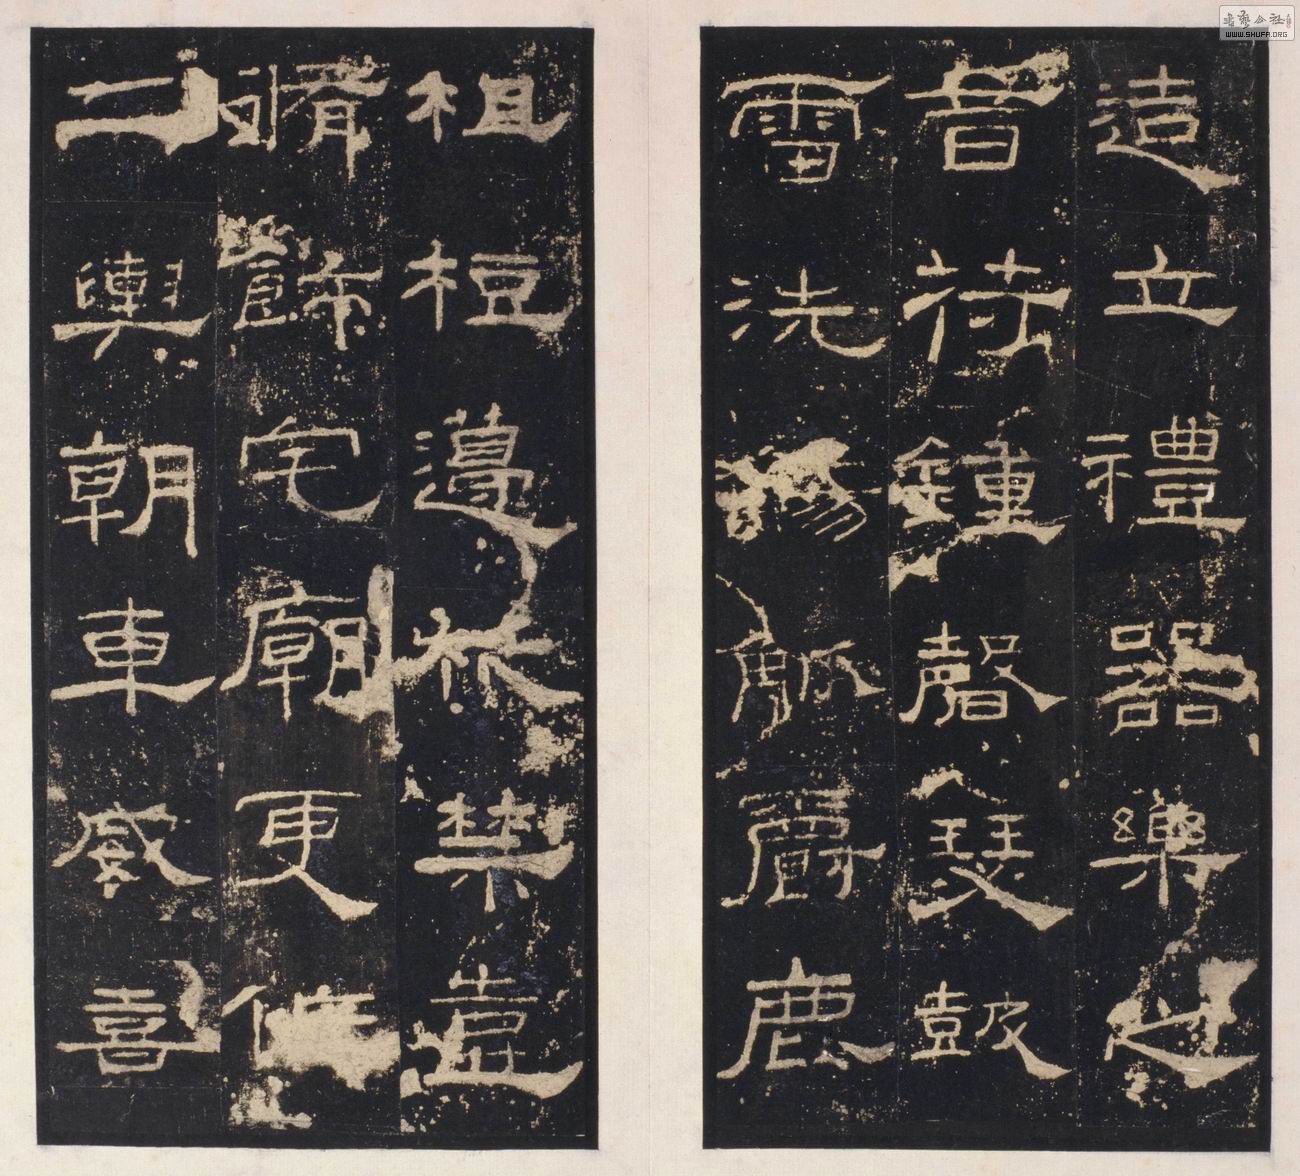 造立禮器樂之
音苻鍾磬瑟鼓
雷洗觴觚爵鹿
柤梪籩柉禁壺
脩飾宅廟更作
二輿朝車威喜
書藝公社
WWW.SHUFA.ORG